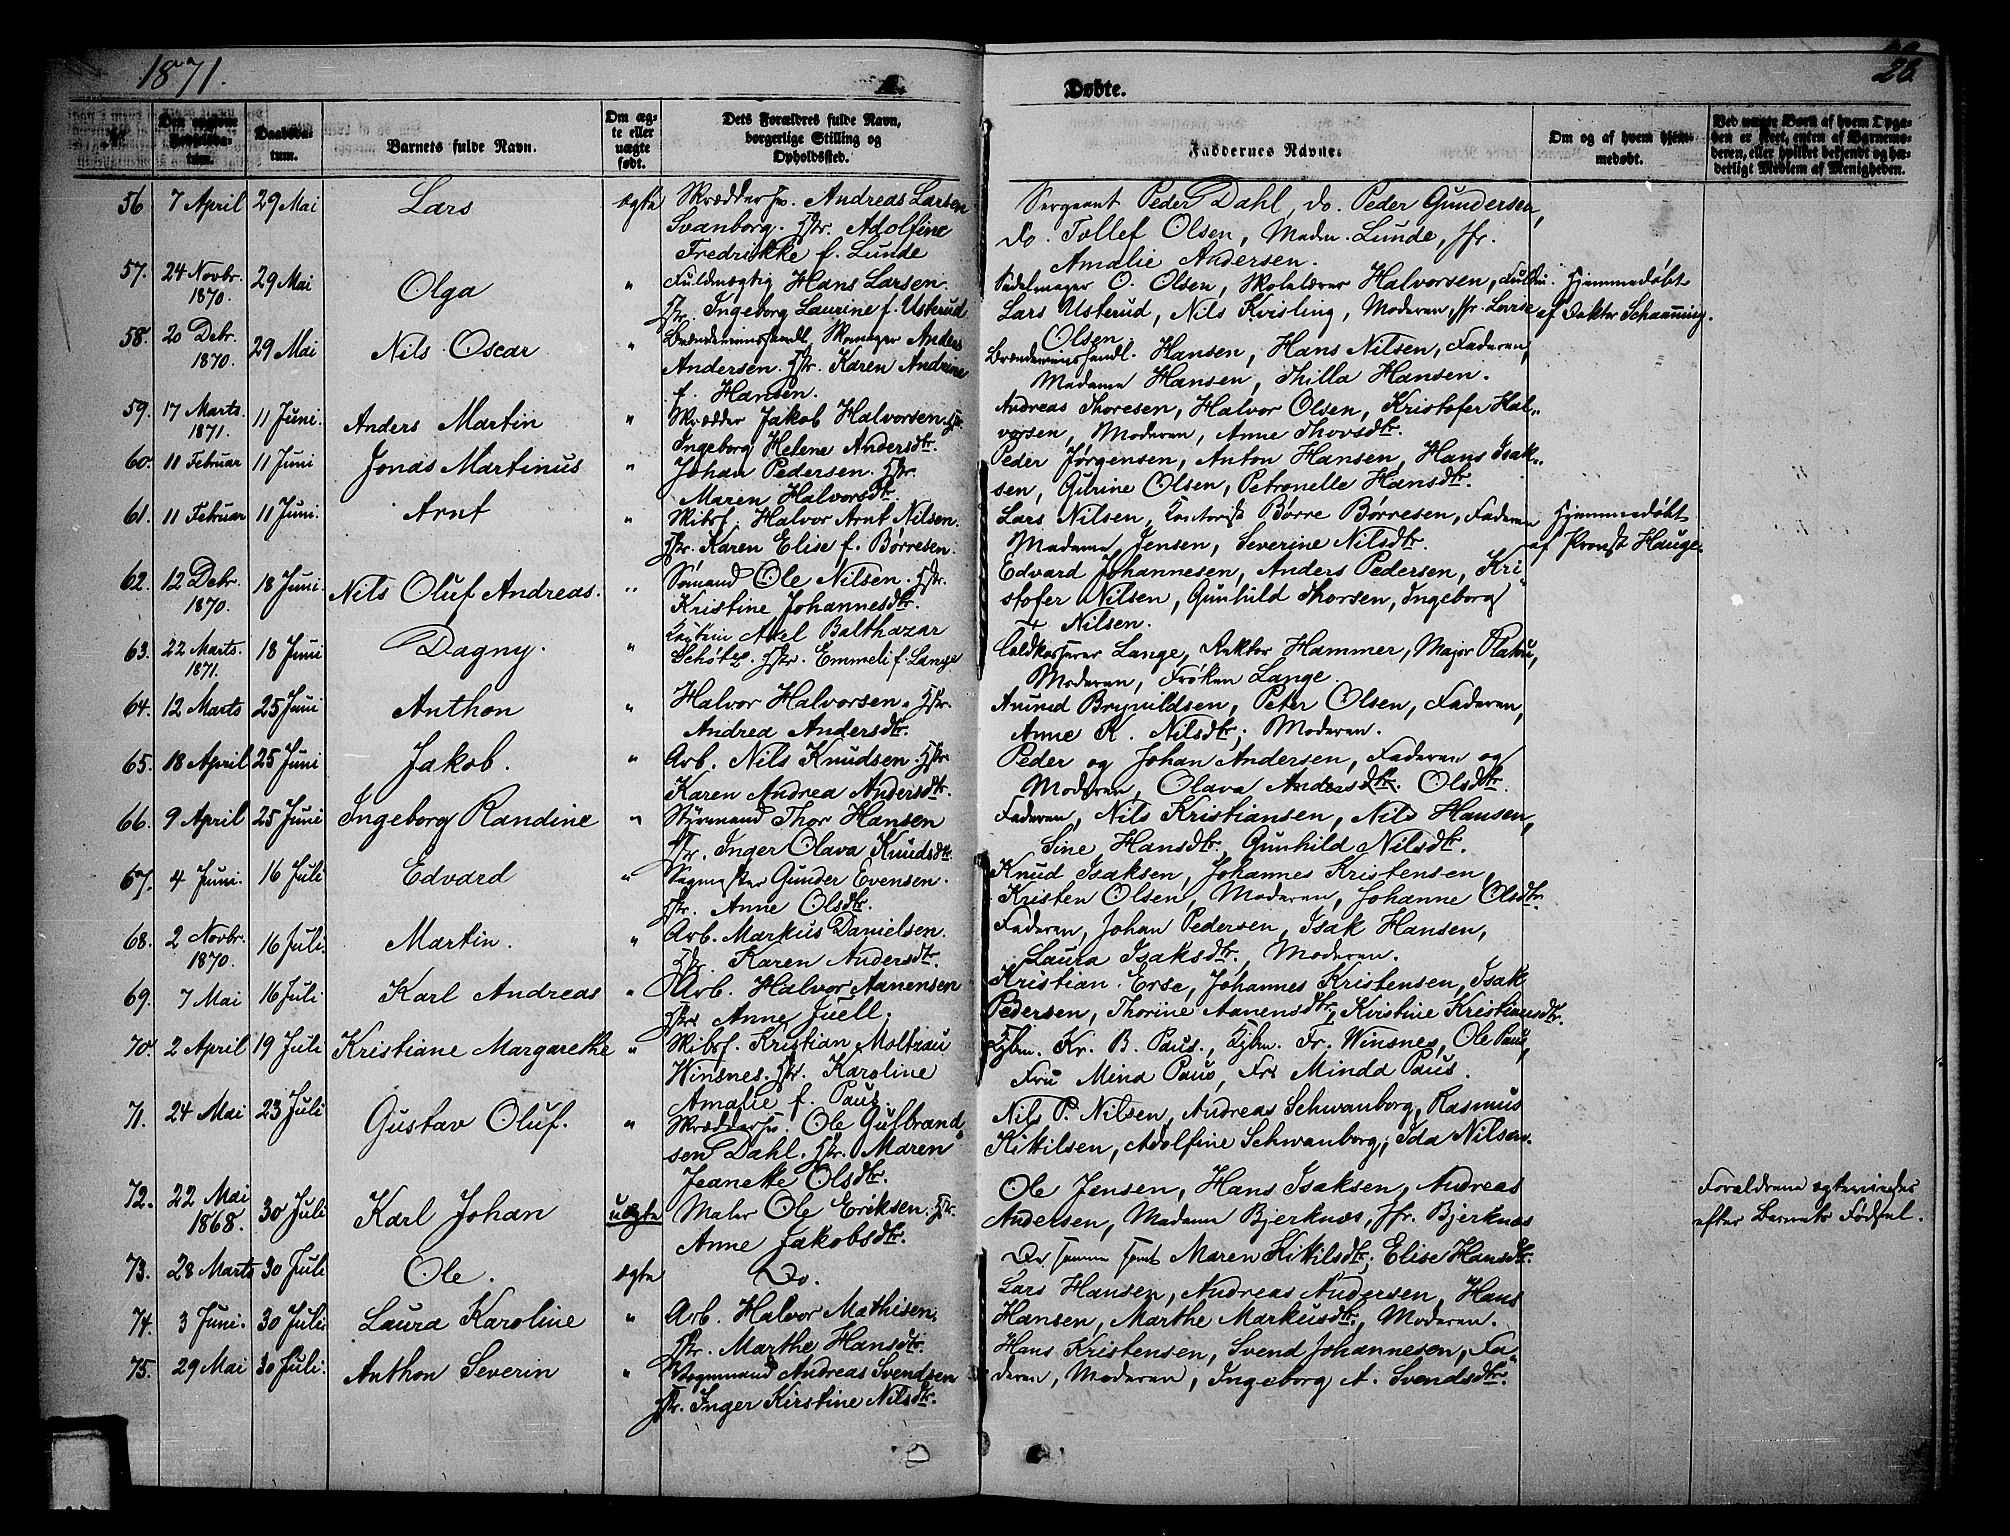 1871.
Døbte.
28
Daabsda-
tum.
Barnets fulde Navn.
Om æg-
te eller
uægte
født.
Dets Forældres fulde Navn,
borgerlige Stilling og
Opholdssted.
Faddernes Navne.
Om og af hvem hjem-
medøbt.
Ved uægte Børn af hvem Opga-
ven er skeet, enten af Barnemo-
deren, eller hvilket bekjendt og hæ-
derligt Medlem af Menigheden.
56 7 April 29 Mai Lars ægte Skrædder Andreas Larsen
Svanborg. Hstr. Adolfine
Fredrikke f. Lunde
Sergeant Peder Dahl, do. Peder Gundersen,
do. Tollef Olsen, Madm. Lunde, Jfr.
Amalie Andersen.
57. 24 Novbr. 1870. 29 Mai Olga " Fuldmægtig Hans Larsen.
Hstr. Ingeborg Laurine f. Usterud
Sadelmager O. Olsen, Skolelærer Halvorsen, Fuldm.
Lars Usterud, Nils Kvisling, Moderen, Jfr. Lovise
Olsen
Hjemmedøbt
af Doktor Schaanning.
58. 20 Debr. 1870. 29 Mai Nils Oscar " Brændevinshandl. Skomager Anders
Andersen. Hstr. Karen Andrine
f. Hansen.
Brændevinshandl. Hansen, Hans Nilsen, Faderen,
Madame Hansen, Thilla Hansen.
59. 17 Marts 1871. 11 Juni. Anders Martin " Skrædder Jakob Halvorsen. Hstr.
Ingeborg Helene Andersdtr.
Andreas Thoresen, Halvor Olsen, Kristofer Hal-
vorsen, Moderen, Anne Thovsdtr.
60. 11 Februar 11 Juni Jonas Martinus " Johan Pedersen. Hstr.
Maren Halvorsdtr.
Peder Jørgensen, Anton Hansen, Hans Isak-
sen, Gurine Olsen, Petronelle Hansdtr.
61. 11 Februar 11 Juni. Arnt " Skibsf. Halvor Arnt Nilsen.
Hstr. Karen Elise f. Børresen.
Lars Nilsen, Kontorist Børre Børresen, Faderen
Madame Jensen, Severine Nilsdtr.
Hjemmedøbt
af Provst Hauge.
62. 12 Debr. 1870. 18 Juni. Nils Oluf Andreas. " Sømand Ole Nilsen. Hstr.
Kristine Johannesdtr.
Edvard Johannesen, Anders Pedersen, Kri-
stofer Nilsen, Gunhild Thorsen, Ingeborg
Nilsen.
63. 22 Marts. 1871. 18 Juni Dagny. " Kaptein Axel Balthazar
Schøtz. Hstr. Emmeli f. Lange
Toldkasserer Lange, Rektor Hammer, Major Platou,
Moderen, Frøken Lange.
64. 12 Marts 25 Juni Anthon " Halvor Halvorsen. Hstr.
Andrea Andersdtr.
Anund Brynildsen, Peter Olsen, Faderen,
Anne K. Nilsdtr, Moderen.
65. 18 April 25 Juni Jakob. " Arb. Nils Knudsen. Hstr.
Karen Andrea Andersdtr.
Peder og Johan Andersen, Faderen og
Moderen, Olava Andersdtr. Olsdtr.
66. 9 April 25 Juni Ingeborg Randine " Styrmand Thor Hansen
Hstr. Inger Olava Knudsdtr.
Faderen, Nils Kristiansen, Nils Hansen,
Sine Hansdtr. Gunhild Nilsdtr.
67. 4 Juni. 16 Juli Edvard " Sagmester Gunder Evensen.
Hstr. Anne Olsdtr.
Knud Isaksen, Johannes Kristensen,
Kristen Olsen, Moderen, Johanne Olsdtr.
68. 2 Novbr. 1870. 16 Juli. Martin. " Arb. Markus Danielsen.
Hstr. Karen Andersdtr.
Faderen, Johan Pedersen, Isak Hansen,
Laura Isaksdtr, Moderen.
69. 7 Mai 16 Juli Karl Andreas " Arb. Halvor Aanensen
Hstr. Anne Juell.
Kristian Erse, Johannes Kristensen, Isak
Pedersen, Thorine Aanensdtr, Kirstine Kristiansdtr.
70. 2 April 19 Juli Kristiane Margarethe " Skibsf. Kristian Moltzau
Winsnes. Hstr. Karoline
Amalie f. Paus.
Kjbm. Kr. B. Paus., Kjbm. Fr. Winsnes, Ole Paus,
Fru Mina Paus, Frk Minda Paus.
71. 24 Mai 23 Juli Gustav Oluf. " Skræddersv. Ole Gulbrand-
sen Dahl. Hstr. Maren
Jeanette Olsdtr.
Nils P. Nilsen, Andreas Schwanborg, Rasmus
Kittilsen, Adolfine Schwanborg, Ida Nilsen.
72. 22 Mai 1868. 30 Juli Karl Johan uægte Maler Ole Eriksen. Hstr.
Anne Jakobsdtr.
Ole Jensen, Hans Isaksen, Andreas
Andersen, Madame Bjerknæs, Jfr. Bjerknæs
Forældrene ægteviedes
efter Barnets Fødsel.
73. 28 Marts 30 Juli Ole. ægte Do.
De samme samt Maren Kittilsdtr, Elise Hansdtr.
74. 3 Juni. 30 Juli. Laura Karoline " Arb. Halvor Mathisen.
Hstr. Marthe Hansdtr.
Lars Hansen, Andreas Andersen, Hans
Hansen, Marthe Markusdtr, Moderen.
75. 29 Mai 30 Juli. Anthon Severin " Vognmand Andreas Svendsen
Hstr. Inger Kirstine Nilsdtr.
Hans Kristensen, Svend Johannesen, Fa-
deren, Moderen, Ingeborg A. Svendsdtr.